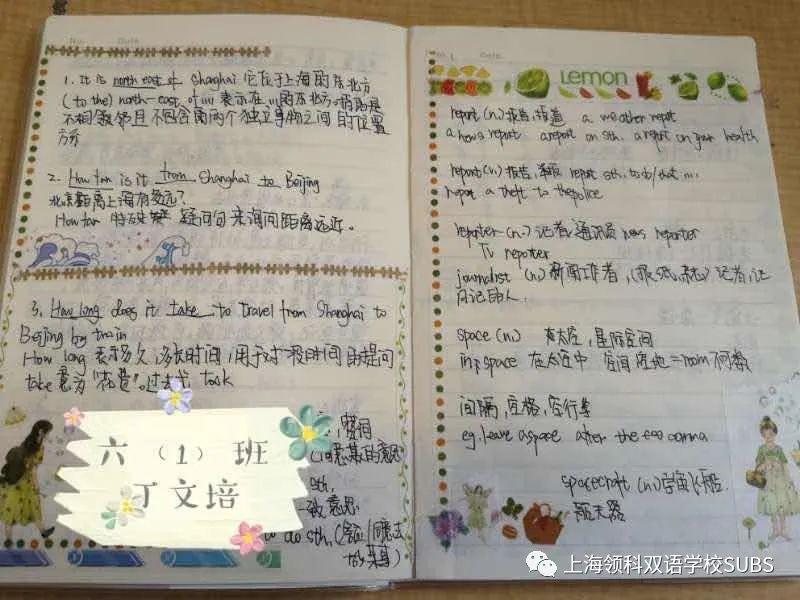 No. Date
1. It is north east of Shanghai 它位于上海的东北方
(to the) north-east of ... 表示在...的东北方
不相邻且不包含的两个独立事物之间的位置
方
2. How far is it from Shanghai to Beijing
北京距离上海有多远?
How far 特殊 疑问句 来询问距离远近。
3. How long does it take to travel from Shanghai to
Beijing by train
How long 表示多久,多长时间,用于对一段时间的提问
take 意为"花费"。过去式 took
六(1)班
丁文培
sth.
to do sth.
Date
Lemon
report (n.) 报告,报道 a weather report
a news report a report on sth. a report on your health
report (v.) 报告,举报 report sth. to sb/that ...
report a theft to the police
reporter (n.) 记者,通讯员 news reporter
TV reporter
journalist (n.) 新闻工作者,(报纸,)记者,
日记的人.
space (n.) 太空,星际空间
in space 在太空中 空间 空地 = room 不可数
间隔,空格,空行
eg. leave a space after the comma
spacecraft (n.) 宇宙飞船
航天器
上海领科双语学校SUBS